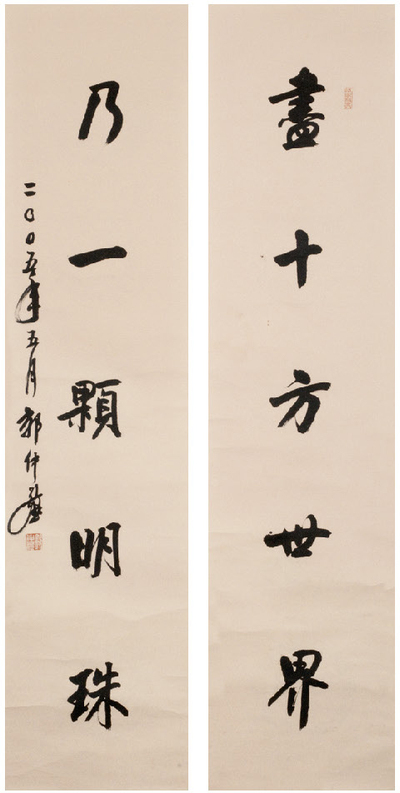 盡十方世界
乃一顆明珠
二〇〇五年五月郭仲